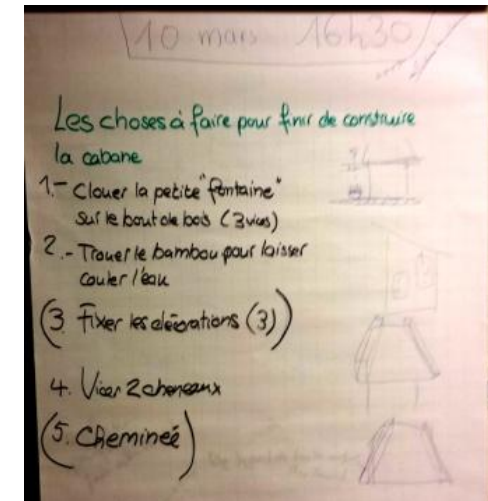 10 mars 16h30
Les choses à faire pour finir de construire
la cabane
1.- Clouer la petite "fontaine"
sur le bout de bois (3 vies)
2.- Trouer le bambou pour laisser
couler l'eau
(3. Fixer les décorations (3))
4. Visser 2 cheneaux
(5. Chemineé)